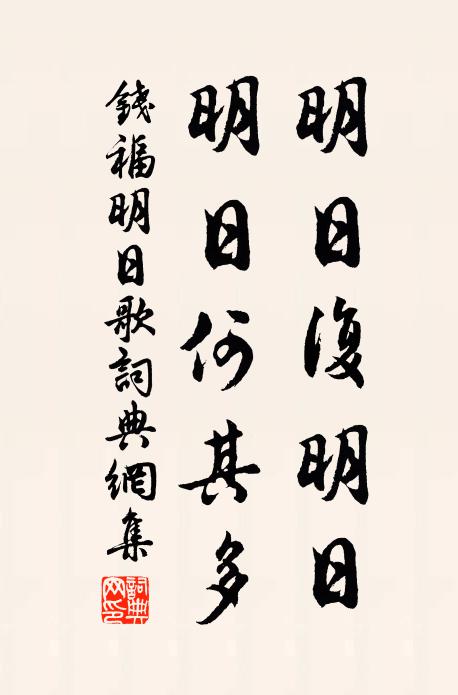 明日復明日
明日何其多
錢福明日歌詞典網集
詞典网印